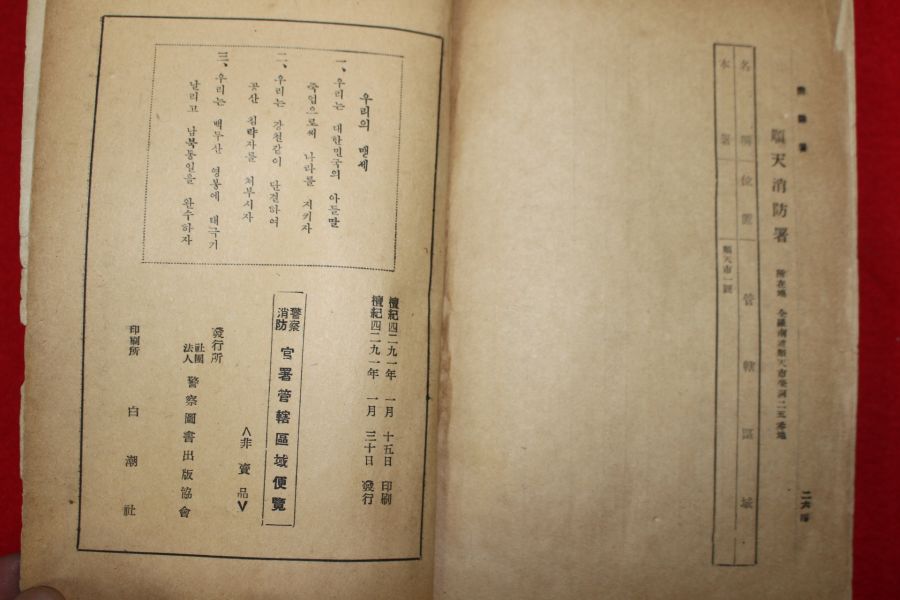 順天消防署
所在地 全羅南道順天市
名稱
位置
管轄區域
本署
順天市一圓
우리의 맹세
一、우리는 대한민국의 아들딸
죽엄으로써 나라를 지키자
二、우리는 강철같이 단결하여
공산 침략자를 처부시자
三、우리는 백두산 영봉에 태극기
날리고 남북통일을 완수하자
檀紀四二九一年 一月 十五日 印刷
檀紀四二九一年 一月 三十日 發行
警察
消防
官署管轄區域便覽
<非賣品>
發行所 社團
法人 警察圖書出版協會
印刷所 白潮社